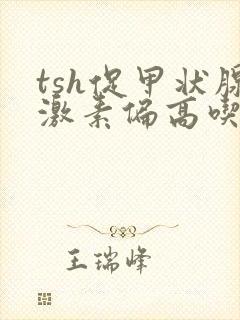 tsh促甲状腺
激素偏高喫
王瑞峰